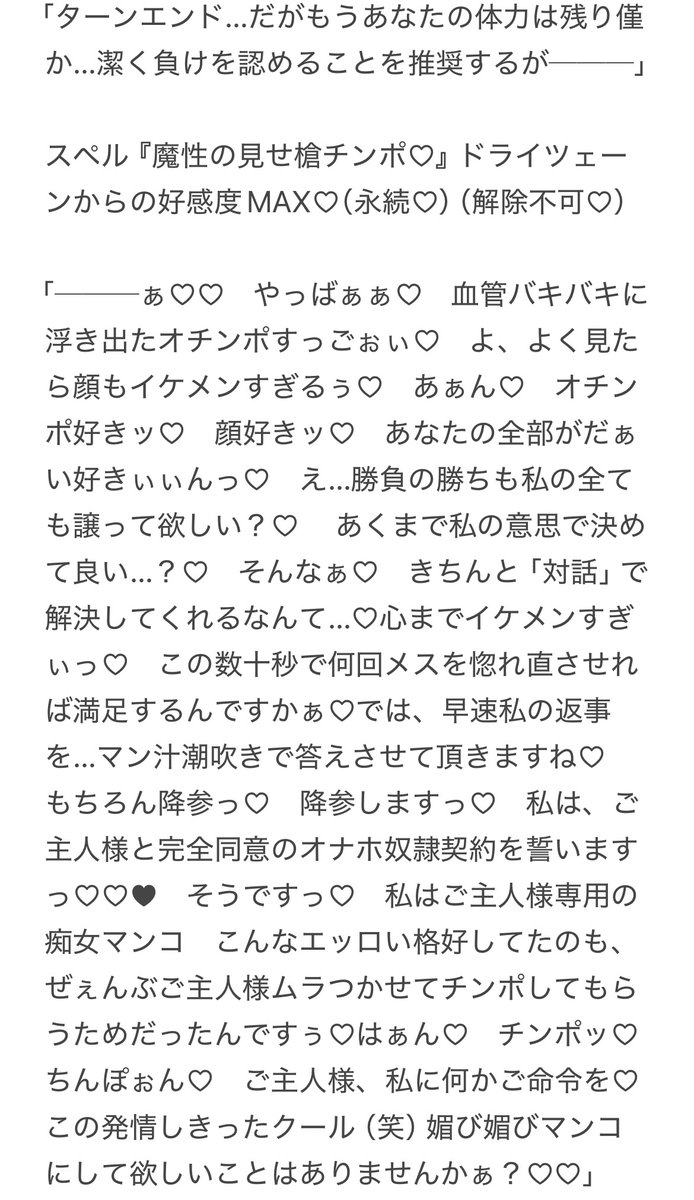 「ターンエンド…だがもうあなたの体力は残り僅
か…潔く負けを認めることを推奨するが────」
スペル『魔性の見せ槍チンポ♡』ドライツェー
ンからの好感度MAX♡（永続♡）（解除不可♡）
「────ぁ♡♡　やっばぁぁ♡　血管バキバキに
浮き出たオチンポすっごぉぃ♡　よ、よく見た
ら顔もイケメンすぎるぅ♡　あぁん♡　オチン
ポ好きッ♡　顔好きッ♡　あなたの全部がだぁ
い好きぃぃんっ♡　え…勝負の勝ちも私の全て
も譲って欲しい？♡　あくまで私の意思で決め
て良い…？♡　そんなぁ♡　きちんと「対話」で
解決してくれるなんて…♡心までイケメンすぎ
ぃっ♡　この数十秒で何回メスを惚れ直させれ
ば満足するんですかぁ♡では、早速私の返事
を…マン汁潮吹きで答えさせて頂きますね♡
もちろん降参っ♡　降参しますっ♡　私は、ご
主人様と完全同意のオナホ奴隷契約を誓います
っ♡♡♥　そうですっ♡　私はご主人様専用の
痴女マンコ　こんなエッロい格好してたのも、
ぜぇんぶご主人様ムラつかせてチンポしてもら
うためだったんですぅ♡はぁん♡　チンポッ♡
ちんぽぉん♡　ご主人様、私に何かご命令を♡
この発情しきったクール（笑）媚び媚びマンコ
にして欲しいことはありませんかぁ？♡♡」